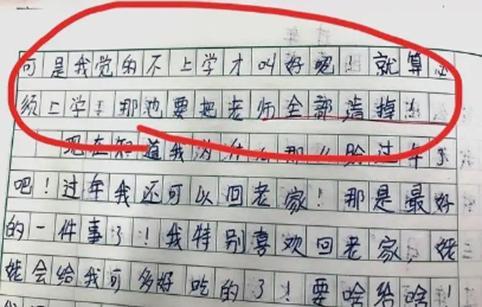 可是我觉的不上学才叫好呢!就算
须上学!那也要把老师全部清掉!
现在知道我为什么那么盼过年了
吧!过年我还可以回老家!那是最好
的一件事了!我特别喜欢回老家 姥
姥会给我可多好吃的了!要啥给啥!